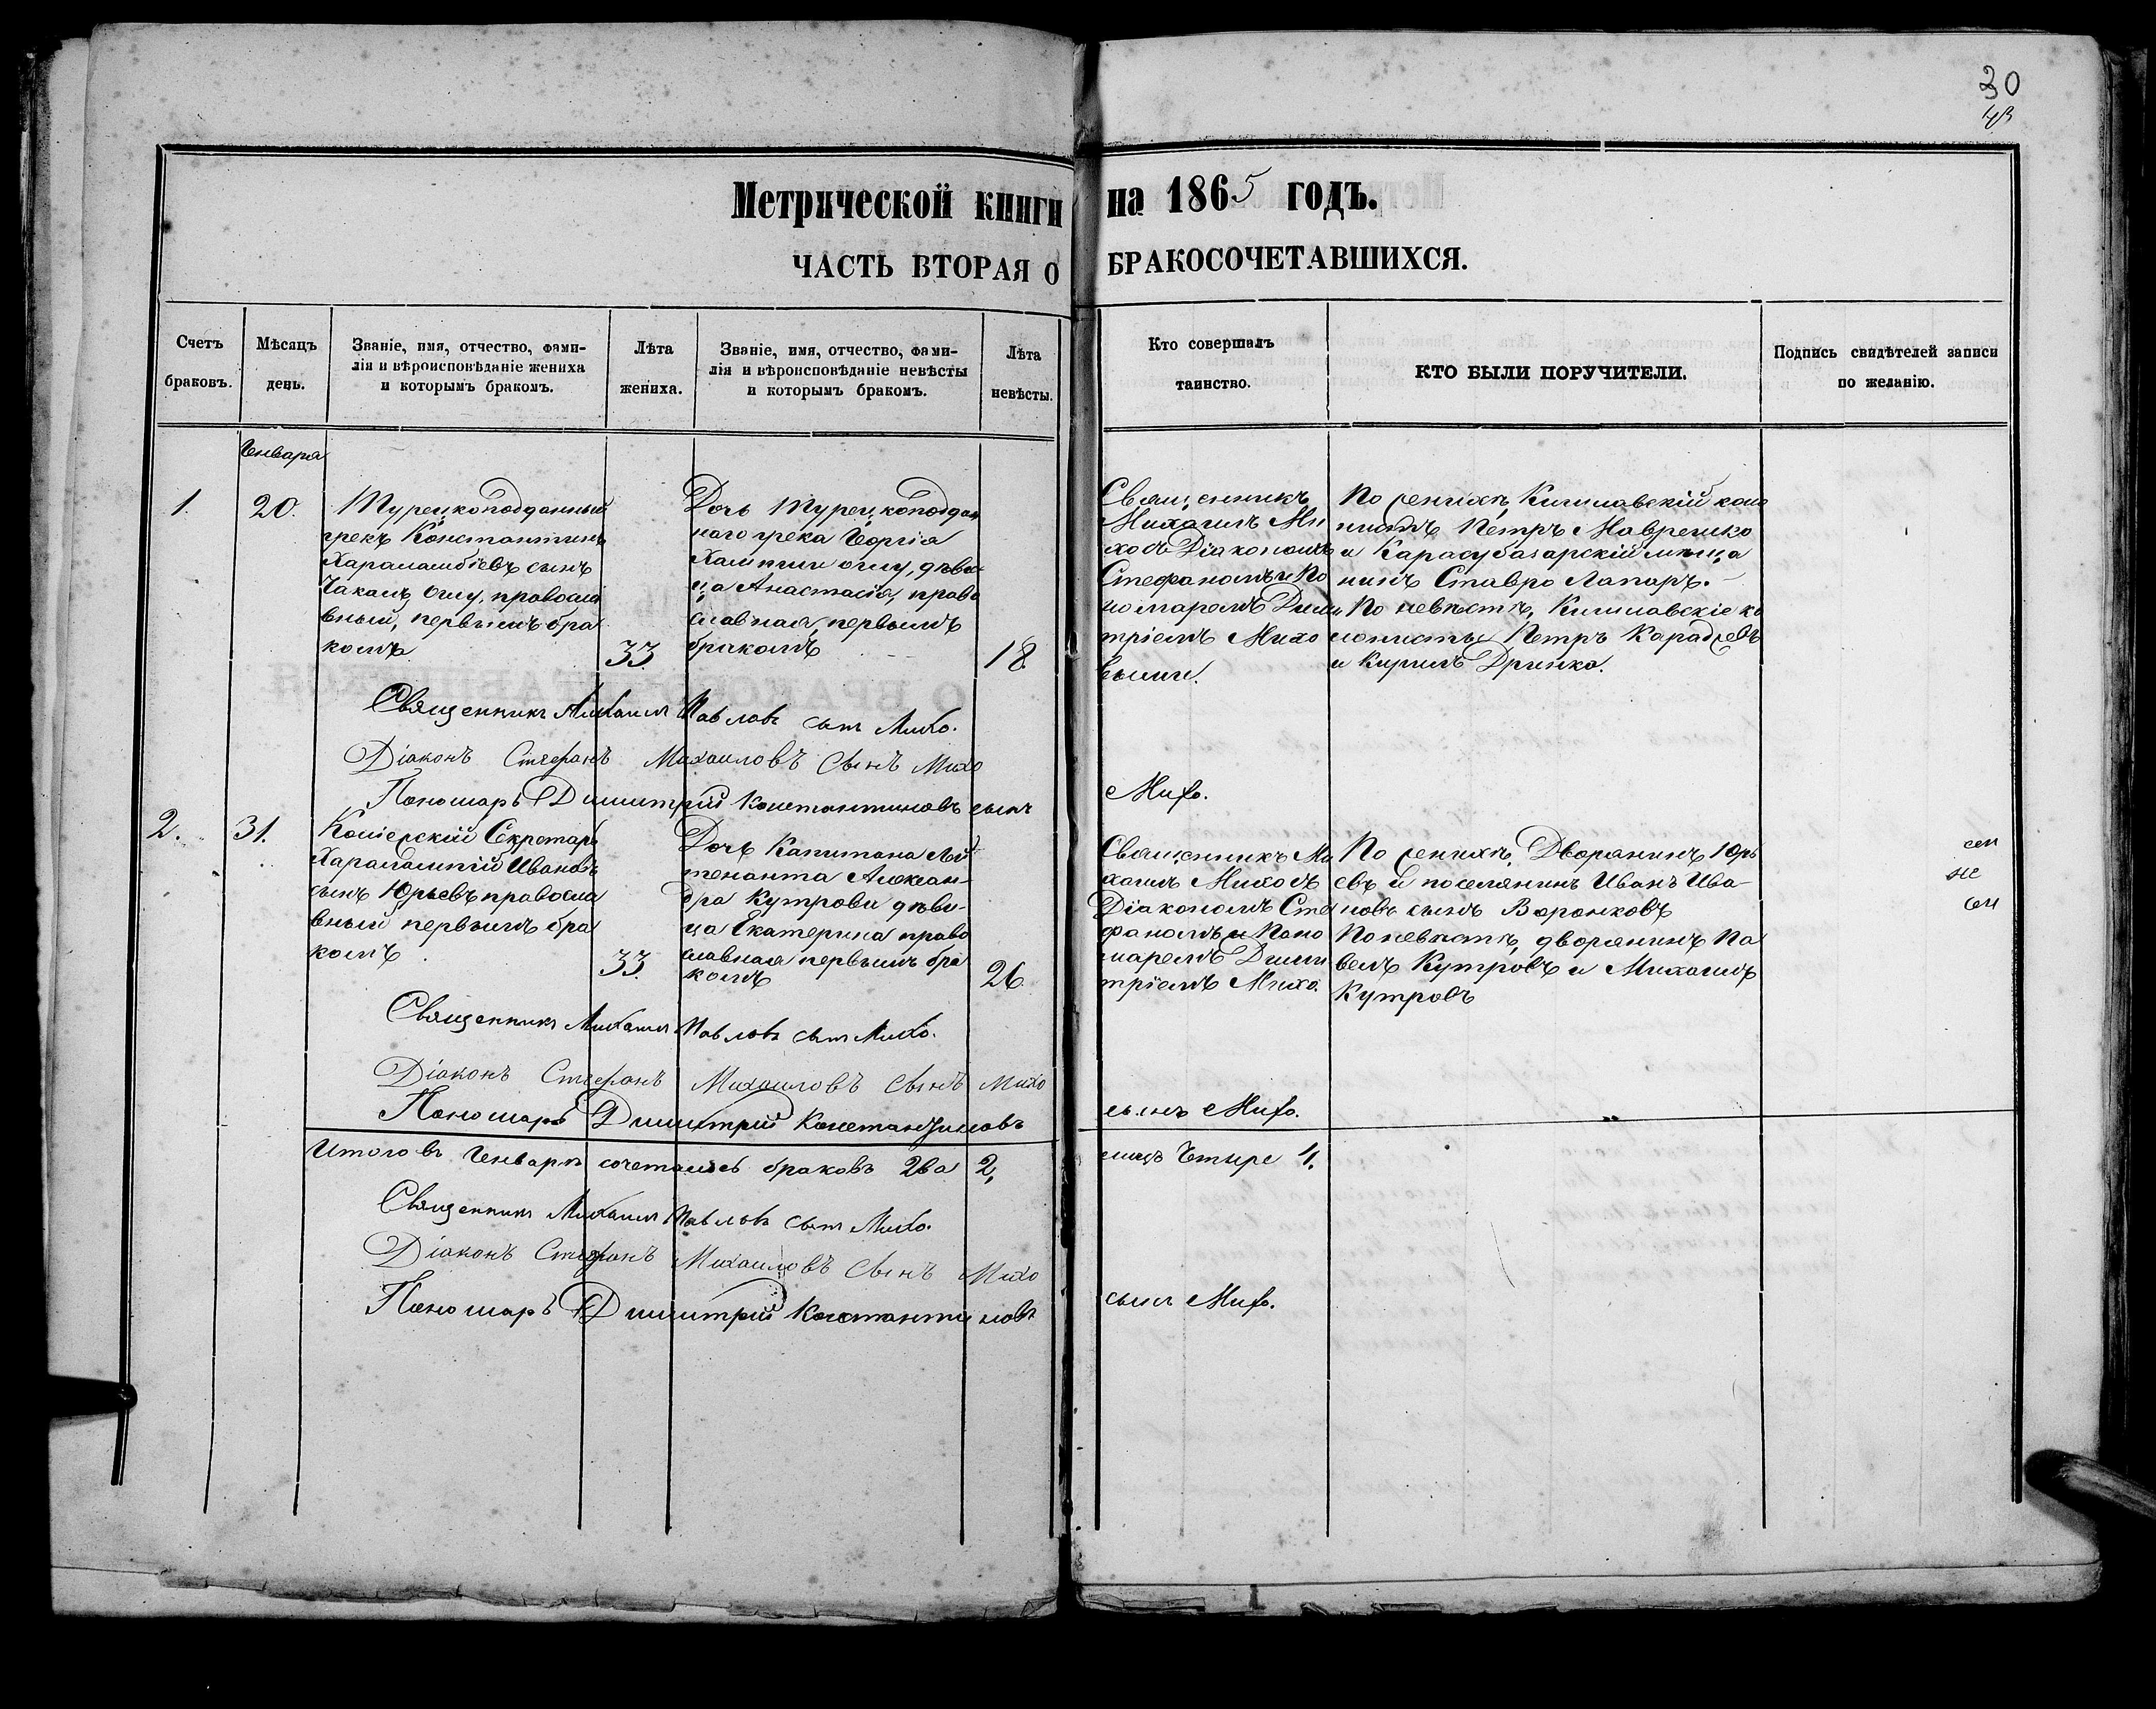 30
Метрической книги на 1865 годъ.
ЧАСТЬ ВТОРАЯ О БРАКОСОЧЕТАВШИХСЯ.
Счетъ браковъ.
Мѣсяцъ день.
Званіе, имя, отчество, фами-
лія и вѣроисповѣданіе жениха
и которымъ бракомъ.
Лѣта жениха.
Званіе, имя, отчество, фами-
лія и вѣроисповѣданіе невѣсты
и которымъ бракомъ.
Лѣта невѣсты.
Кто совершалъ
таинство.
КТО БЫЛИ ПОРУЧИТЕЛИ.
Подпись свидѣтелей записи
по желанію.
Генваря
1.
20.
Турецкоподданный
грекъ Константинъ
Харалампіевъ сынъ
Чакалъ Оглу, правосла
вный, первымъ бра
комъ
33
Дочь Турецкоподдан
наго грека Георгія
оглу, дѣви-
ца Анастасія, право
славная, первымъ
бракомъ
18
Священникъ
Михаилъ Ми
хо съ Діакономъ
Стефаномъ и По
номаремъ Дими
тріемъ Михо
выми.
По женихѣ, Кишлавскій коло
нистъ Петръ Мавренко
и Карасубазарскій мѣща
нинъ Ставро Лапаръ.
По невѣстѣ, Кишлавскіе ко
лонисты Петръ Караджевъ
и Кирилъ Дринко.
Священникъ Михаилъ Павловъ сынъ Михо.
Діаконъ Стефанъ Михаиловъ Сынъ Михо
Пономарь Димитрій Константиновъ сынъ Михо.
2.
31.
Секретарь
Харалампій Ивановъ
сынъ Юрьевъ правосла
вный первымъ бра
комъ
33
Дочь Капитана Лей
тенанта Алексан-
дра Кутрова дѣви-
ца Екатерина право
славная первымъ бра
комъ
26
Священникъ Ми
хаилъ Михо съ
Діакономъ Сте
фаномъ и Поно
маремъ Дими
тріемъ Михо.
По женихѣ, Дворянинъ Юрь
евъ и поселянинъ Иванъ Ива-
новъ сынъ Воронковъ
По невѣстѣ, дворянинъ Па
велъ Кутровъ и Михаилъ
Кутровъ
Священникъ Михаилъ Павловъ сынъ Михо.
Діаконъ Стефанъ Михаиловъ Сынъ Михо
Пономарь Димитрій Константиновъ сынъ Михо.
Итого въ Генварѣ сочеталось браковъ два 2, лицъ Четыре 4.
Священникъ Михаилъ Павловъ сынъ Михо.
Діаконъ Стефанъ Михаиловъ Сынъ Михо
Пономарь Димитрій Константиновъ сынъ Михо.